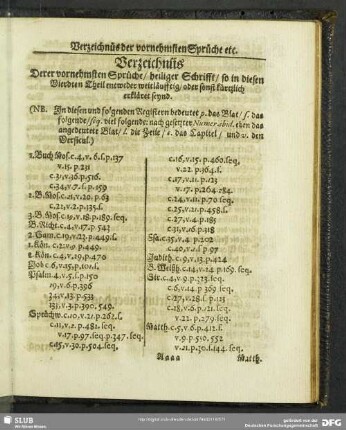 Verzeichnüs der vornehmsten Sprüche etc.
Verzeichnüs
Derer vornehmsten Sprüche/ heiliger Schrifft/ so in diesen
Vierdten Theil entweder weitläufftig/ oder sonst kürtzlich
erkläret seynd.
(NB. In diesen und folgenden Registern bedeutet p. das Blat/ f. das
folgende/ seq. viel folgende: nach gesetzter Numer aber eben das
angedeutete Blat/ l. die Zeile/ c. das Capitel/ und v. den
Versicul.)
1. Buch Mos. c.4, v.6. f. p.137
v.15. p.231
c.31, v.36. p.516.
c.34, v.7. f. p.159
2. B. Mos. c.21, v.20. p.63
c.22, v.2. p.135. f.
3. B. Mos. c.19, v.18. p.189. seq.
B. Richt. c.4, v.17. p.543
2. Sam. c.19, v.23. p.449. f.
1. Kön. c.2, v.1. p.97
2. Kön. c.4, v.19. p.470
Job c.6, v.15. p.101. f.
Psalm. 4. v.5. f. p.150
19, v.6. p.396
34, v.13. p.531
131, v.3. p.390. 549.
Sprüchw. c.10, v.21. p.262. f.
c.11, v.2. p.481. seq.
v.17. p.97. seq. p.347. seq.
c.15, v.30. p.504. seq.
c.16, v.15. p.460. seq.
v.22. p.164. f.
c.17, v.21. p.123
v.17. p.264. 284.
c.24, v.11. p.70 seq.
c.25, v.21. p.458. f.
c.27, v.4. p.185
c.31, v.16. p.118
Esa. c.35, v.4. p.202
c.40, v.1. p.449. seq.
Judith. c.9, v.13. p.424
B. Weißh. c.14, v.14. p.169. seq.
Sir. c.4, v.9. p.213. seq.
c.6, v.14. p.369 seq.
c.27, v.28. f. p.125
c.28, v.6. p.121. seq.
v.22. p.279. seq.
Matth. c.5, v.6. p.412. f.
v.9. p.510. 552
v.21. p.30. f. 144. seq.
Aaaa
Matth.
SLUB
Wir führen Wissen.
gefördert von der
Deutschen Forschungsgemeinschaft
DFG